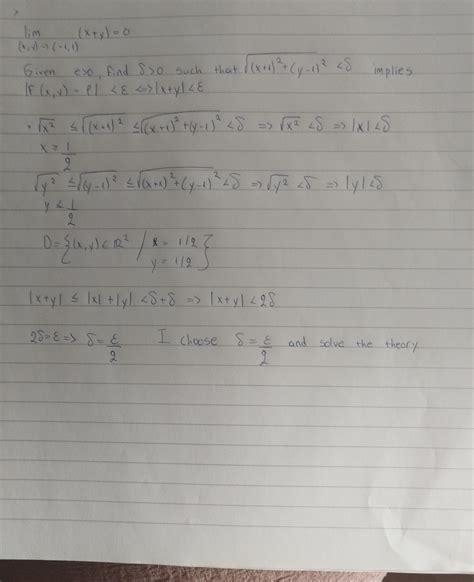 lim (x+y)=0
(x,y)→(-1,1)
Given ε>0, find δ>0 such that √(x+1)²+(y-1)² <δ implies
|f(x,y)-ℓ| <ε <=> |x+y|<ε
• √x² ≤ √(x+1)² ≤ √(x+1)²+(y-1)² <δ => √x² <δ => |x|<δ
x ≥ 1/2
√y² ≤ √(y-1)² ≤ √(x+1)²+(y-1)² <δ => √y² <δ => |y|<δ
y ≤ 1/2
D={(x,y)∈ℝ² / x = 1/2
y = 1/2}
|x+y| ≤ |x|+|y| <δ+δ => |x+y| <2δ
2δ=ε => δ=ε/2 I choose δ=ε/2 and solve the theory